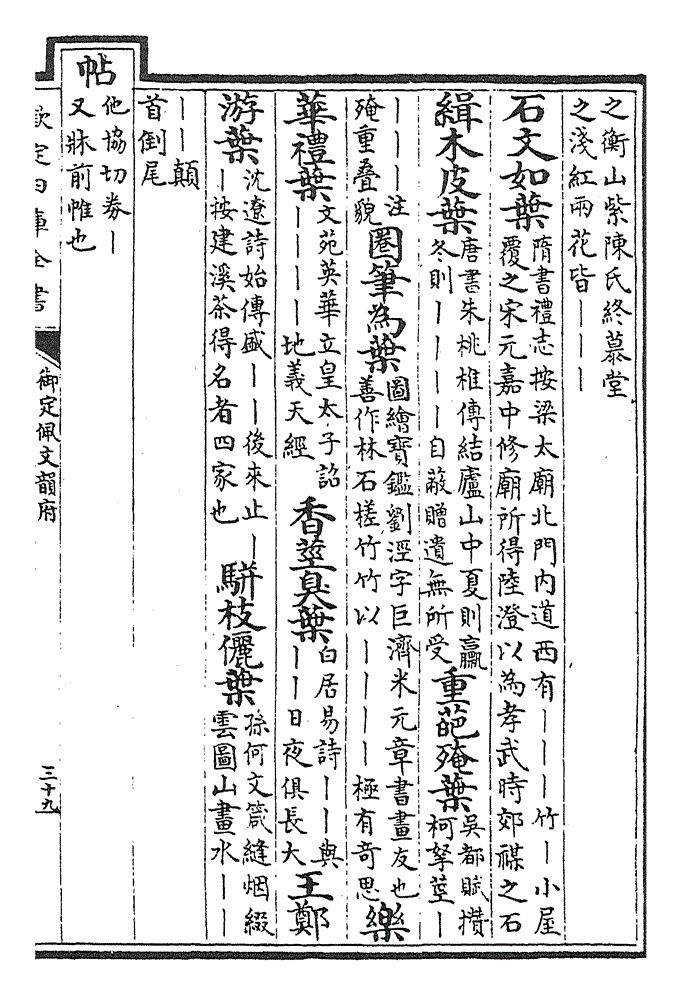 之衡山紫陳氏終慕堂
之淺紅兩花皆丨丨丨
石文如葉
隋書禮志按梁太廟北門内道西有丨丨丨竹丨小屋
覆之宋元嘉中修廟所得陸澄以為孝武時郊禖之石
緝木皮葉
唐書朱桃椎傳結廬山中夏則臝
冬則丨丨丨丨自蔽贈遺無所受
重葩殗葉
吳都賦攢
柯拏莖丨
丨丨丨注
殗重叠貌
圈筆為葉
圖繪寶鑑劉涇字巨濟米元章書畫友也
善作林石槎竹竹以丨丨丨丨極有奇思
樂
華禮葉
文苑英華立皇太子詔
丨丨丨丨地義天經
香莖臭葉
白居易詩丨丨與
丨丨日夜俱長大
王鄭
游葉
沈遼詩始傳盛丨丨後來止丨
丨按建溪茶得名者四家也
駢枝儷葉
孫何文箴縫烟綴
雲圖山畫水丨丨
丨丨顛
首倒尾
帖
他協切券丨
又牀前帷也
欽定四庫全書
御定佩文韻府
三十九